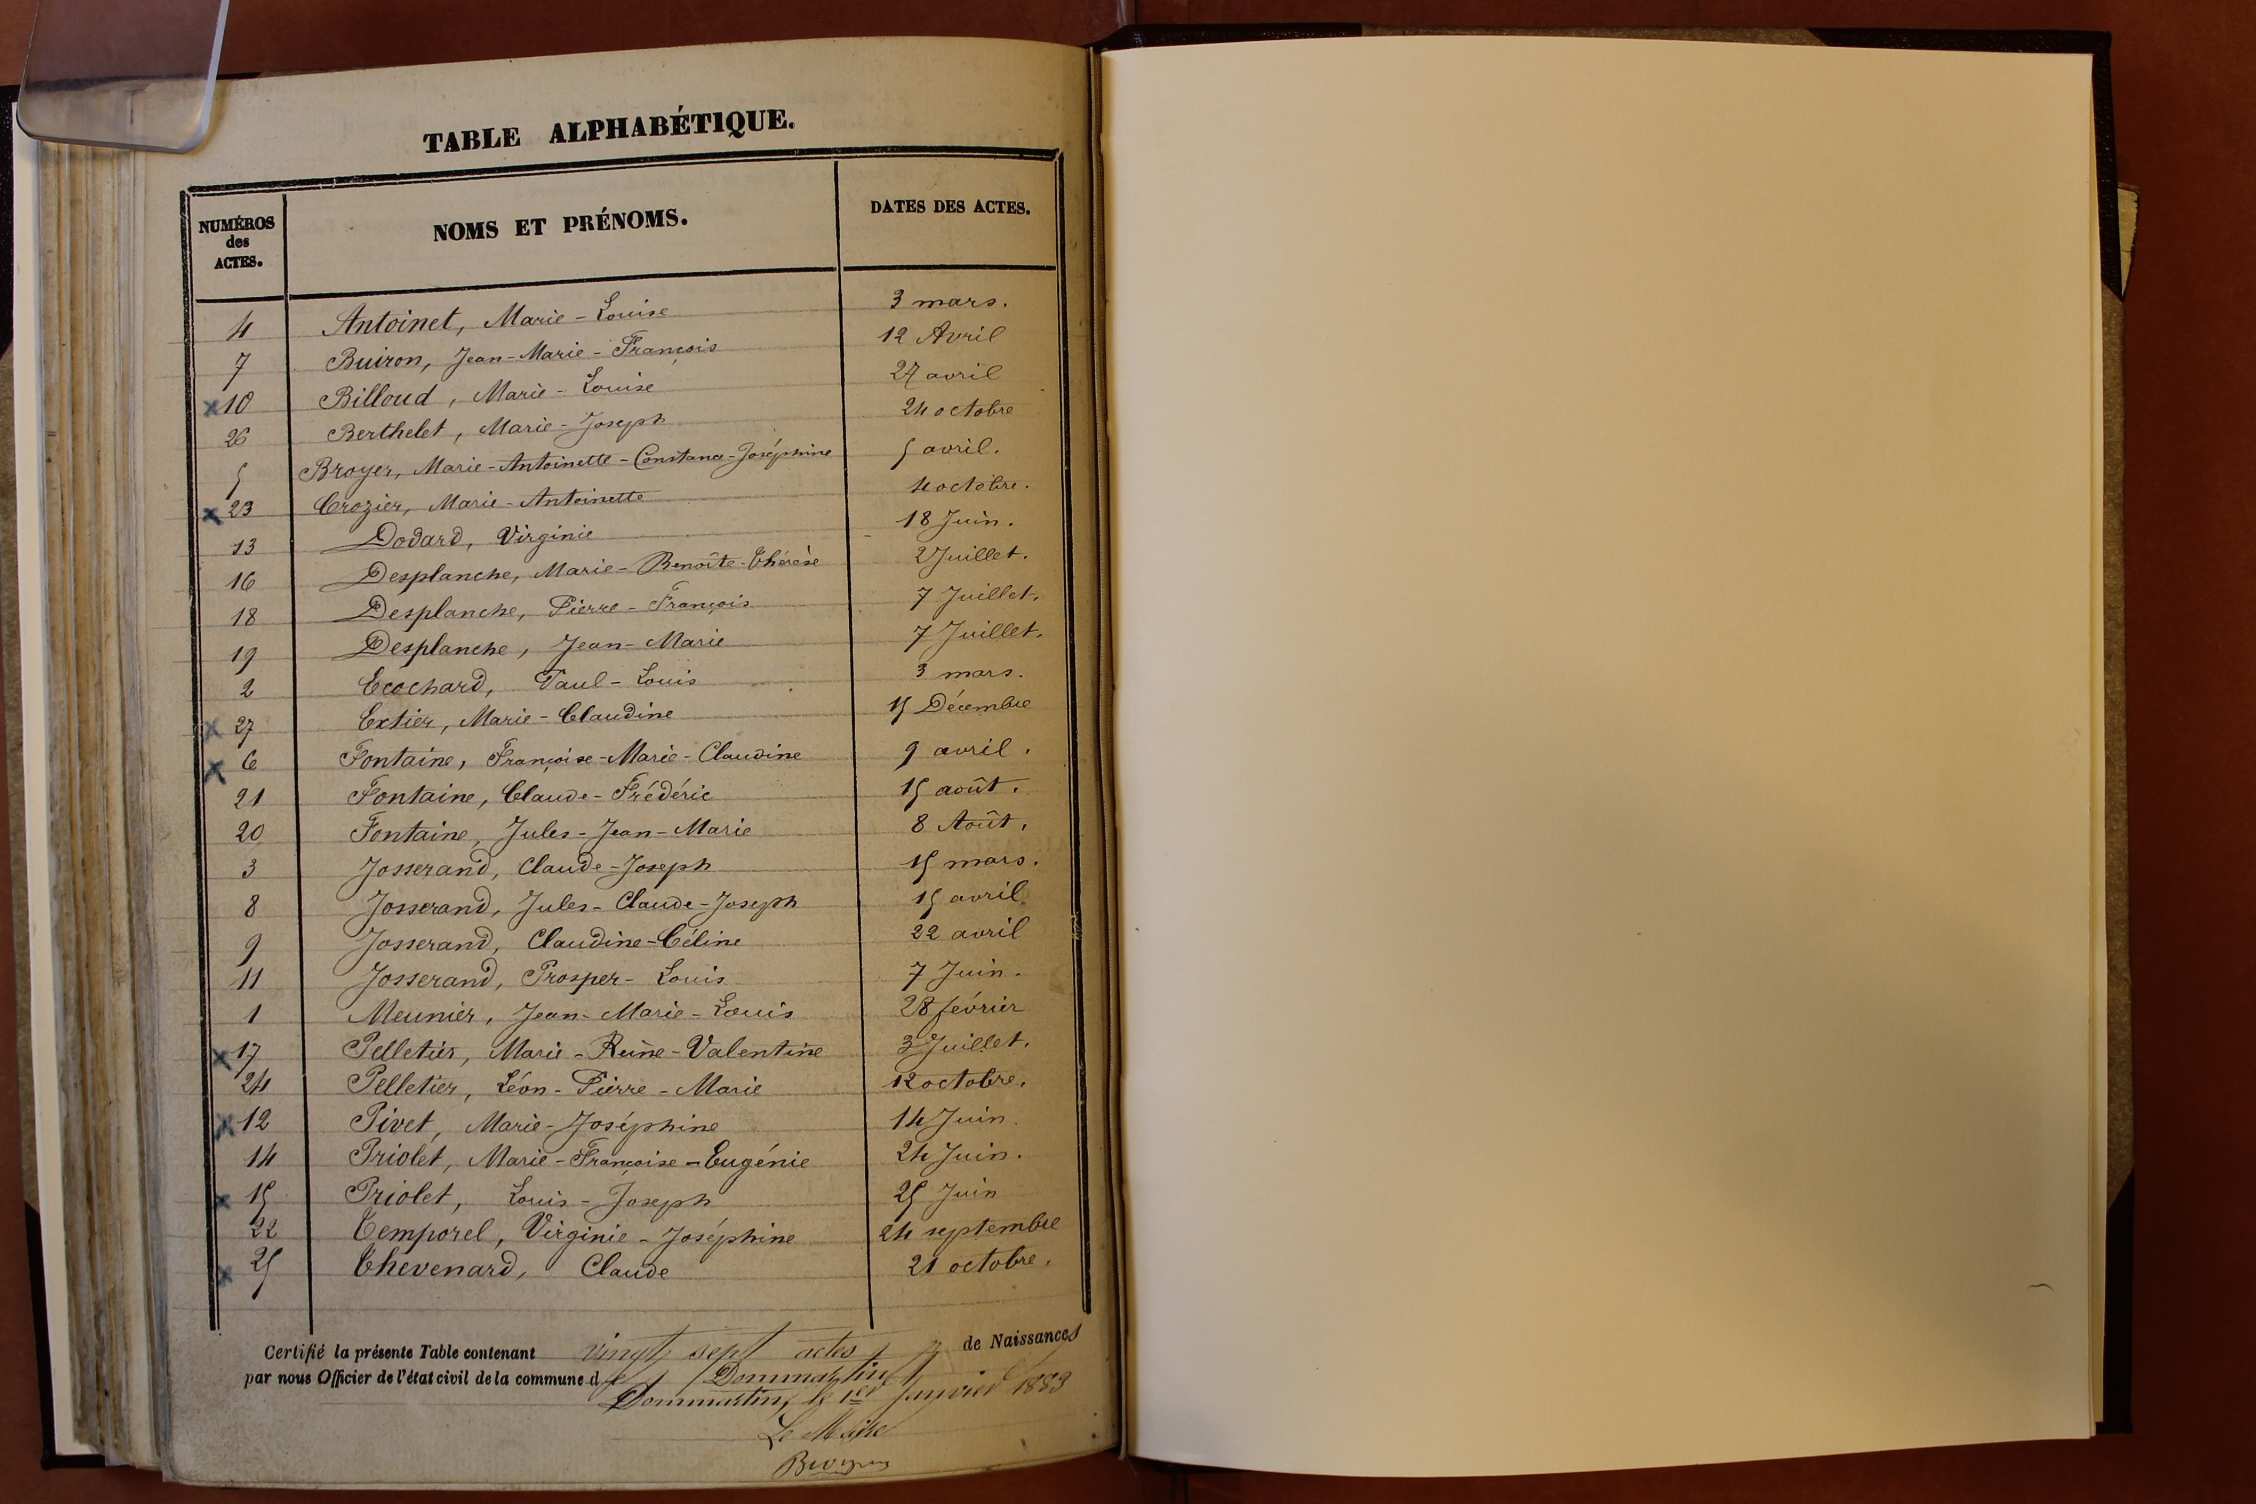 TABLE ALPHABÉTIQUE.
NUMÉROS des ACTES. NOMS ET PRÉNOMS. DATES DES ACTES.
4 Antoinet, Marie-Louise 3 mars.
7 Buiron, Jean-Marie-François 12 Avril
x 10 Billoud, Marie-Louise 27 avril
26 Berthelet, Marie-Joseph 24 octobre
5 Broyer, Marie-Antoinette-Constance-Joséphine 5 avril.
x 23 Crozier, Marie-Antoinette 4 octobre.
13 Dodard, Virginie 18 Juin.
16 Desplanche, Marie-Benoîte-Thérèse 2 Juillet.
18 Desplanche, Pierre-François 7 Juillet.
19 Desplanche, Jean-Marie 7 Juillet.
2 Ecochard, Paul-Louis 3 mars.
x 27 Extier, Marie-Claudine 15 Décembre
x 6 Fontaine, Françoise-Marie-Claudine 9 avril.
21 Fontaine, Claude-Frédéric 15 août.
20 Fontaine, Jules-Jean-Marie 8 Août.
3 Josserand, Claude-Joseph 15 mars.
8 Josserand, Jules-Claude-Joseph 15 avril
9 Josserand, Claudine-Céline 22 avril
11 Josserand, Prosper-Louis 7 Juin.
1 Meunier, Jean-Marie-Louis 28 février
x 17 Pelletier, Marie-Reine-Valentine 3 Juillet.
24 Pelletier, Léon-Pierre-Marie 12 octobre.
x 12 Pivet, Marie-Joséphine 14 Juin.
14 Priolet, Marie-Françoise-Eugénie 24 Juin.
x 15 Priolet, Louis-Joseph 25 Juin
22 Temporel, Virginie-Joséphine 24 septembre
x 25 Thevenard, Claude 21 octobre.
Certifié la présente Table contenant vingt sept actes de Naissances
par nous Officier de l'état civil de la commune de Dommartin
Dommartin, le 1er Janvier 1883
Le Maire